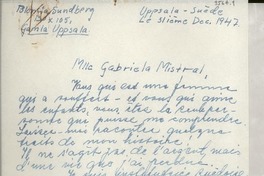 Blenda Sundberg
Box 105,
Gamla Uppsala.
Uppsala - Suède
Le 31ième Dec. 1947
Mlle Gabriela Mistral,
Vous qui est une femme
qui a souffert - et vous qui aime
les enfants, vous êtes la
sonne que puisse me comprendre.
Laissez-moi raconter quelque
traits de mon histoire.
Il ne s'agit pas de l'argent, mais
d'une vie que j'ai perdue.
institutrice suédoise